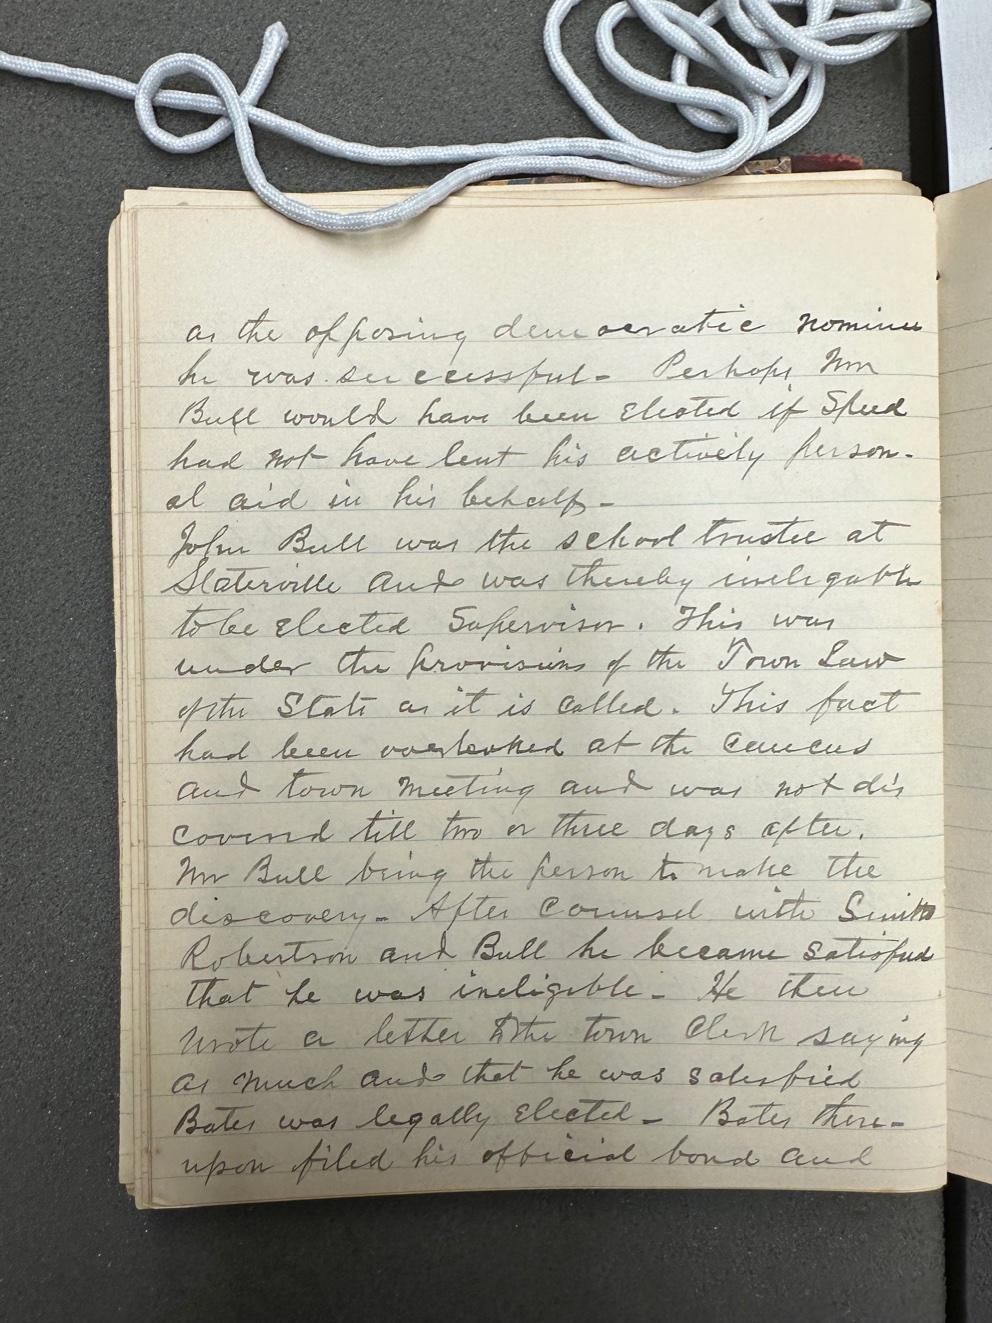 as the opposing democratic nominee
he was successful - Perhaps Mr
Bull would have been Elected if Speed
had not have lent his actively person-
al aid in his behalf -
John Bull was the school trustee at
Slaterville and was thereby ineligable
to be Elected Supervisor. This was
under the provisions of the Town Law
of the State as it is called. This fact
had been overlooked at the Caucus
and town meeting and was not dis
covered till two or three days after.
Mr Bull being the person to make the
discovery - After Counsel with Smith
Robertson and Bull he became satisfied
that he was ineligible - He then
wrote a letter to the town Clerk saying
as much and that he was satisfied
Bates was legally Elected - Bates there-
upon filed his official bond and